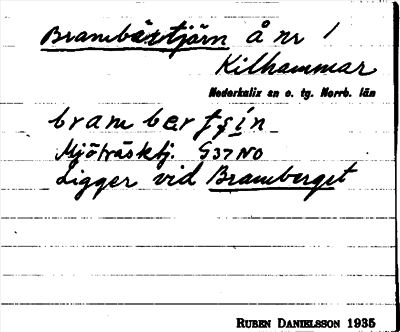 Brambärstjärn å nr 1
Kilhammar
Nederkalix sn o. tg. Norrb. län
brambertsín
Mjöträsktj. 937 NO
Ligger vid Bramberget
RUBEN DANIELSSON 1935